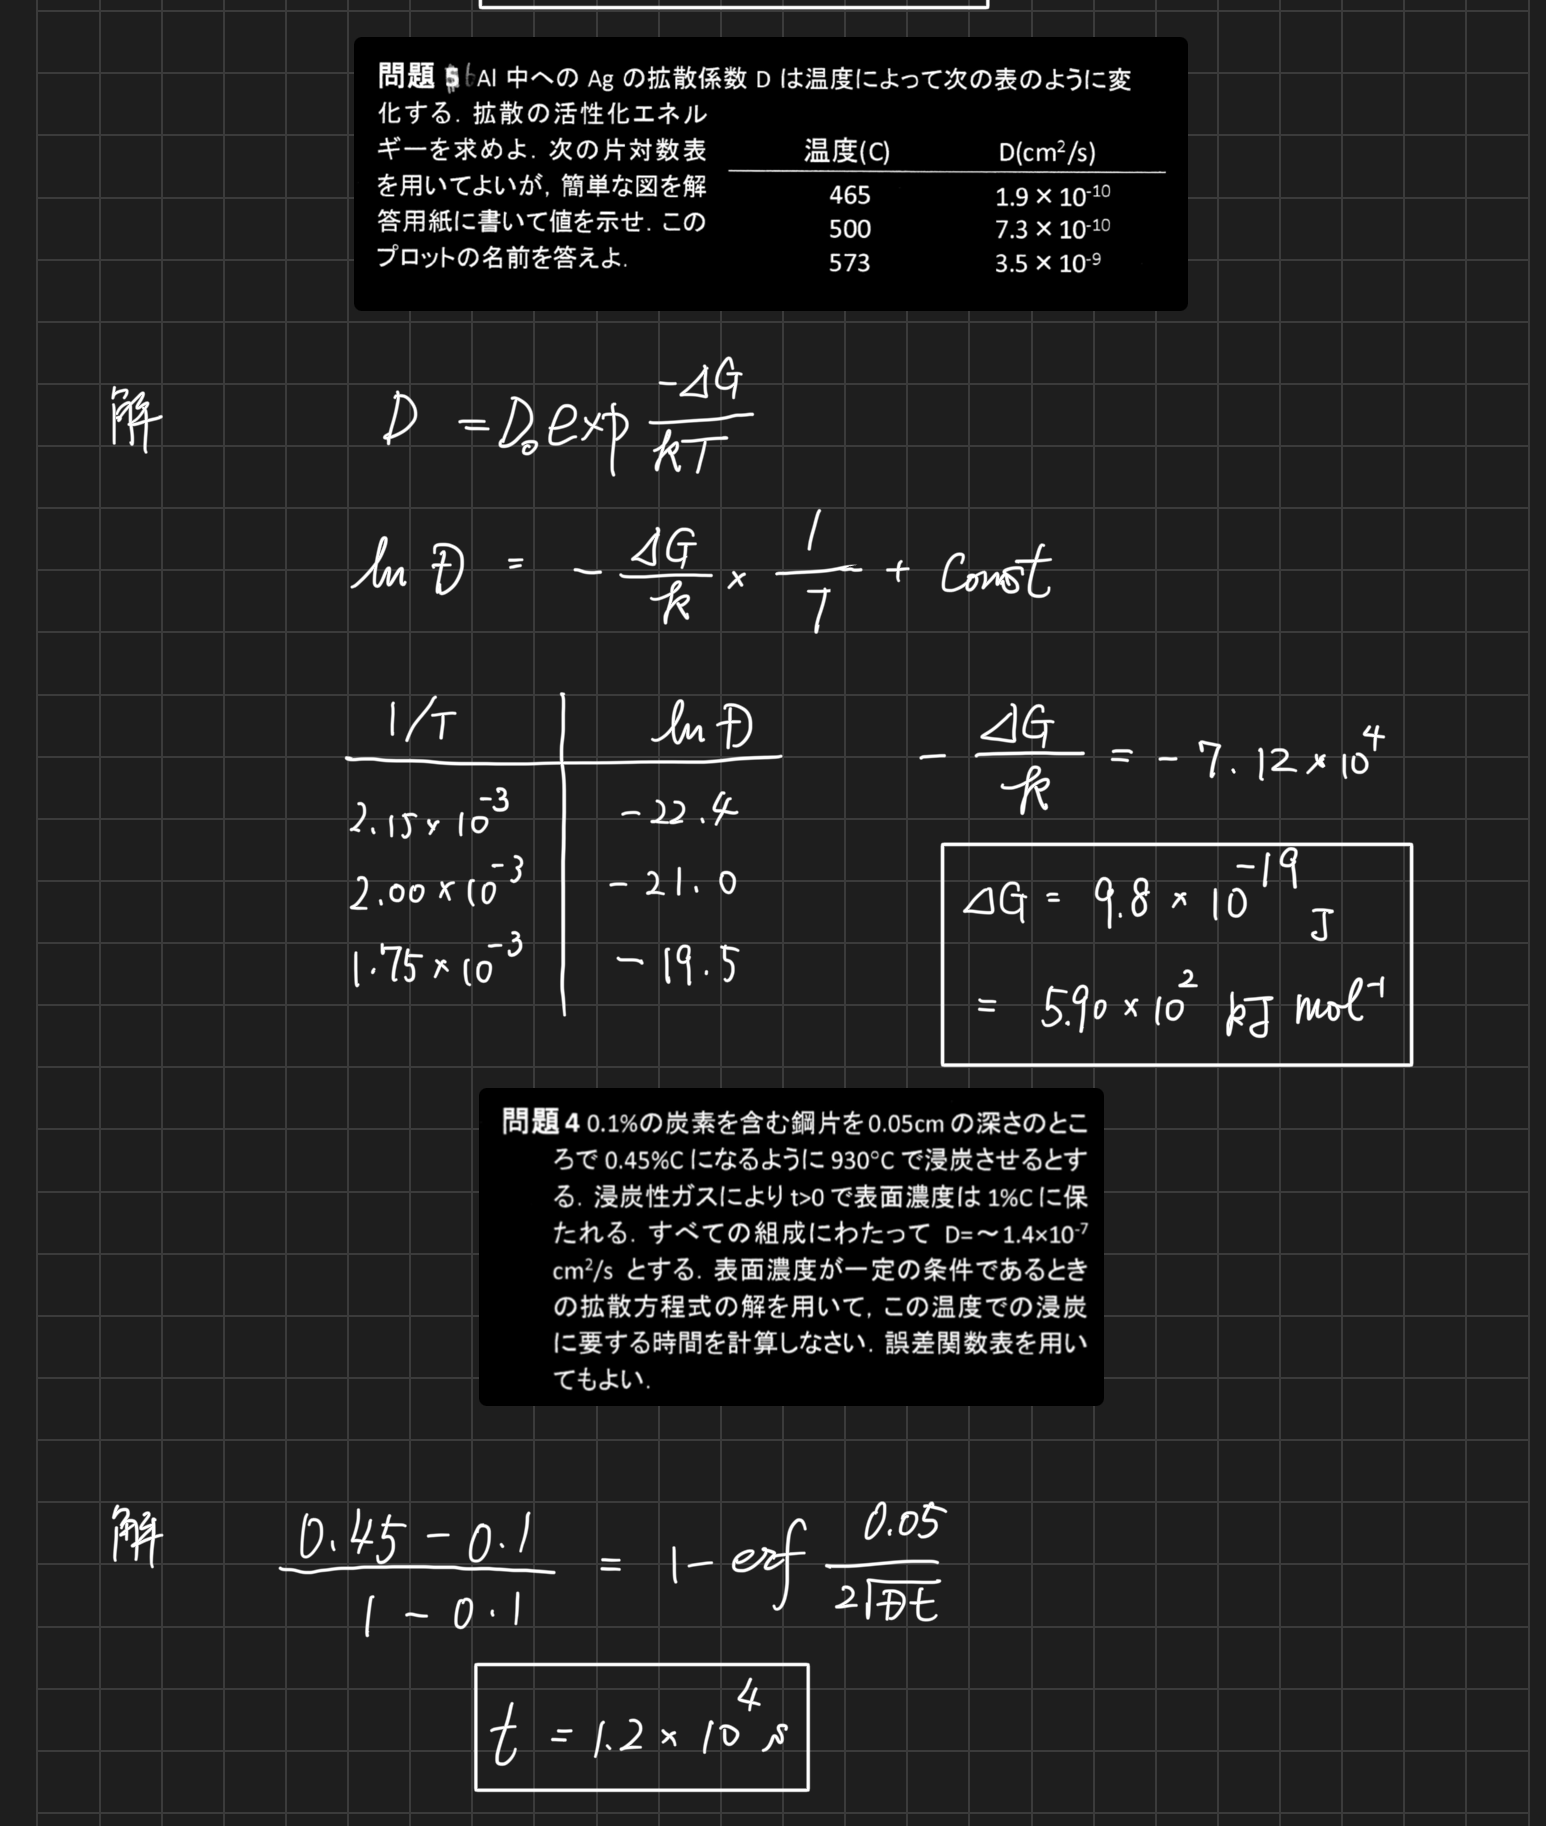 問題 5 6 Al 中への Ag の拡散係数 D は温度によって次の表のように変
化する. 拡散の活性化エネル
ギーを求めよ. 次の片対数表
を用いてよいが, 簡単な図を解
答用紙に書いて値を示せ. この
プロットの名前を答えよ.
温度(C) D(cm²/s)
465 1.9 × 10⁻¹⁰
500 7.3 × 10⁻¹⁰
573 3.5 × 10⁻⁹
解 D = D₀ exp -ΔG/kT
ln D = - ΔG/k × 1/T + Const
1/T ln D
2.15 × 10⁻³ -22.4
2.00 × 10⁻³ -21.0
1.75 × 10⁻³ -19.5
- ΔG/k = -7.12 × 10⁴
ΔG = 9.8 × 10⁻¹⁹ J
= 5.90 × 10² kJ mol⁻¹
問題 4 0.1%の炭素を含む鋼片を 0.05cm の深さのとこ
ろで 0.45%C になるように 930°C で浸炭させるとす
る. 浸炭性ガスにより t>0 で表面濃度は 1%C に保
たれる. すべての組成にわたって D=～1.4×10⁻⁷
cm²/s とする. 表面濃度が一定の条件であるとき
の拡散方程式の解を用いて, この温度での浸炭
に要する時間を計算しなさい. 誤差関数表を用い
てもよい.
解 0.45 - 0.1 / 1 - 0.1 = 1 - erf 0.05 / 2√Dt
t = 1.2 × 10⁴ s